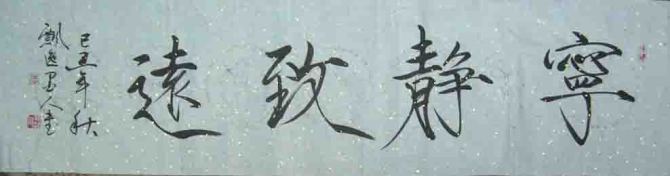 寧靜致遠
己丑年秋
飄逸墨人書